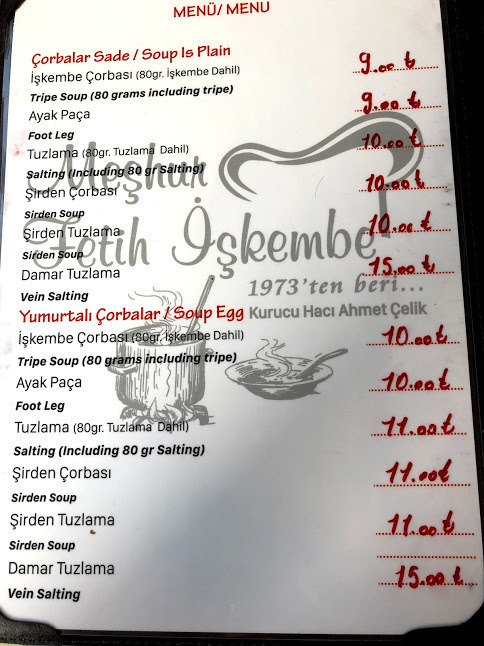 MENÜ/ MENU
Çorbalar Sade / Soup Is Plain
İşkembe Çorbası (80gr. İşkembe Dahil) 9.00 ₺
Tripe Soup (80 grams including tripe)
Ayak Paça 9.00 ₺
Foot Leg
Tuzlama (80gr. Tuzlama Dahil) 10.00 ₺
Salting (Including 80 gr Salting)
Şirden Çorbası 10.00 ₺
Sirden Soup
Şirden Tuzlama 10.00 ₺
Sirden Soup
Damar Tuzlama 15.00 ₺
Vein Salting
Meşhur
Fetih İşkembe
1973'ten beri...
Kurucu Hacı Ahmet Çelik
Yumurtalı Çorbalar / Soup Egg
İşkembe Çorbası (80gr. İşkembe Dahil) 10.00 ₺
Tripe Soup (80 grams including tripe)
Ayak Paça 10.00 ₺
Foot Leg
Tuzlama (80gr. Tuzlama Dahil) 11.00 ₺
Salting (Including 80 gr Salting)
Şirden Çorbası 11.00 ₺
Sirden Soup
Şirden Tuzlama 11.00 ₺
Sirden Soup
Damar Tuzlama 15.00 ₺
Vein Salting